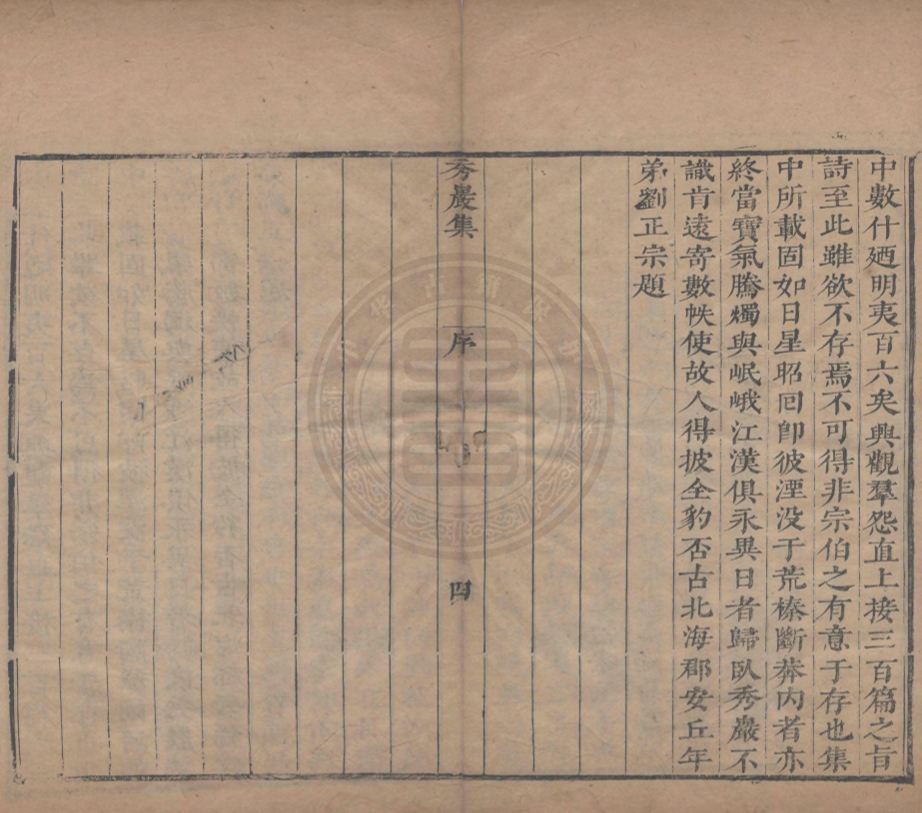 中數什廼明夷百六矣興觀羣怨直上接三百篇之旨
詩至此雖欲不存焉不可得非宗伯之有意于存也集
中所載固如日星昭囘卽彼湮没于荒榛斷莽内者亦
終當寶氣騰燭與岷峨江漢俱永異日者歸臥秀巖不
識肯遠寄數帙使故人得披全豹否古北海郡安丘年
弟劉正宗題
秀巖集 序 四